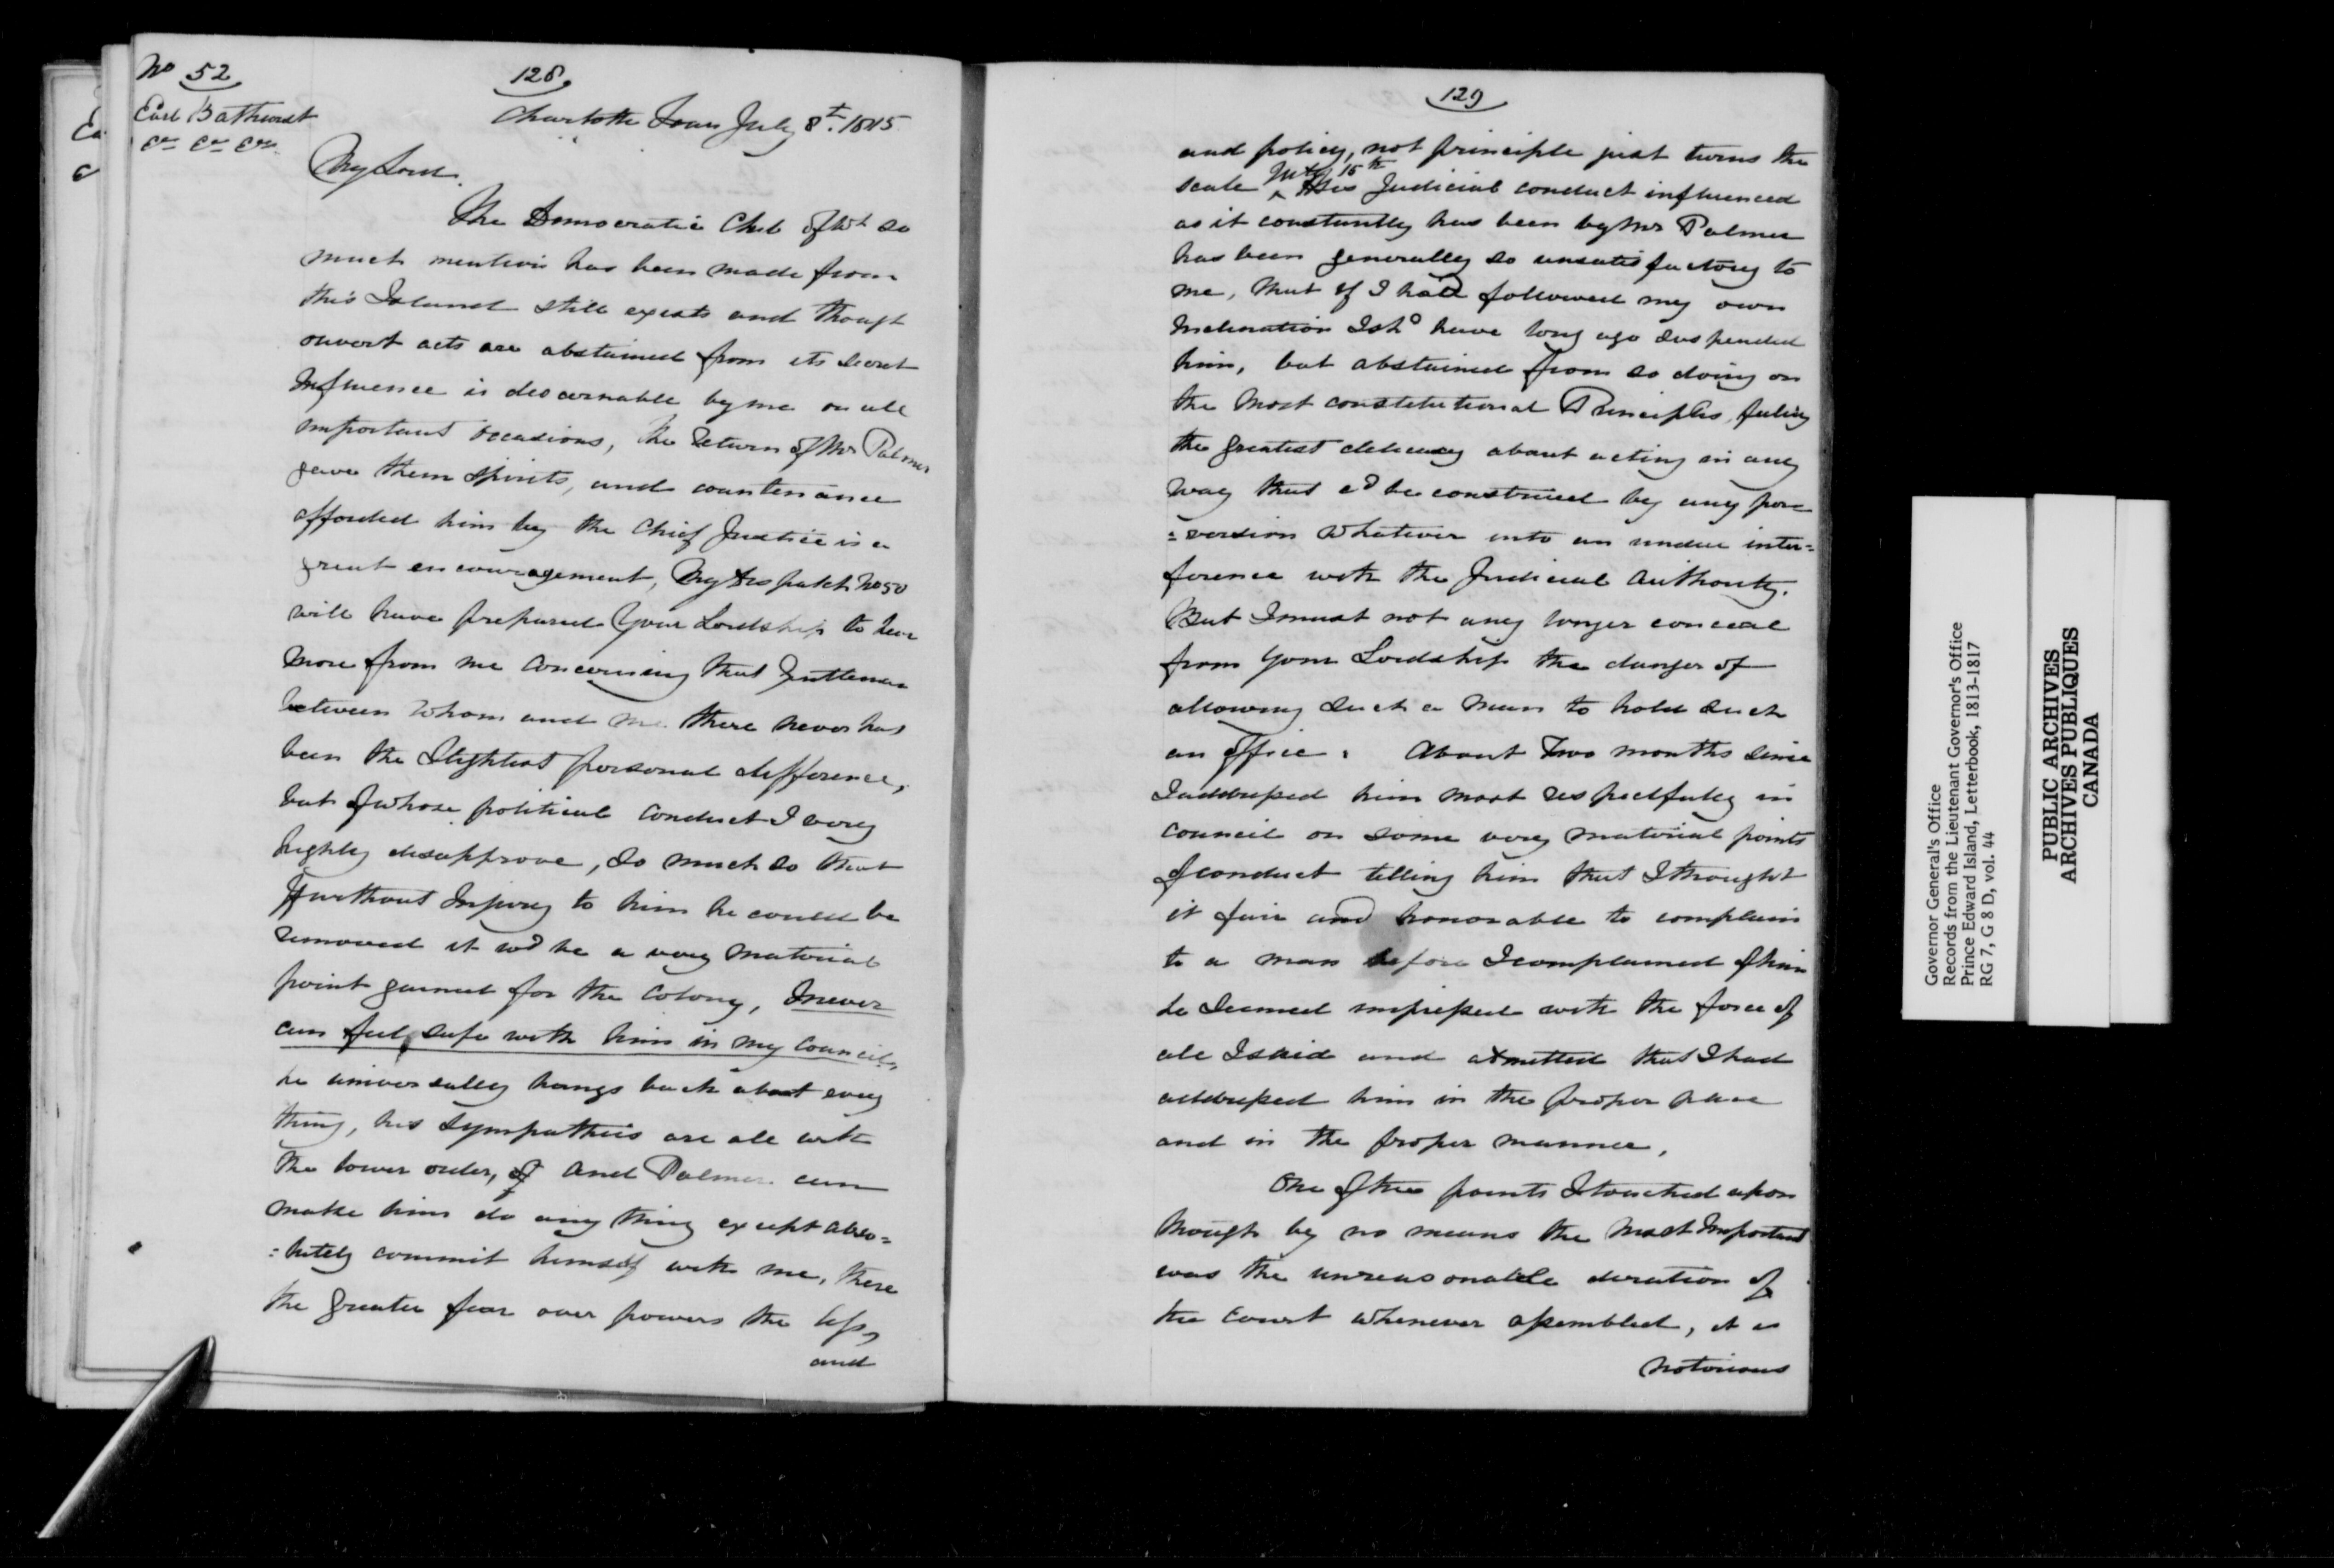 No 52
128
Earl Bathurst
&c &c &c
Charlotte Town July 8th. 1815
My Lord.
The Democratic Club of wh so
much mention has been made from
this Island still exists and though
overt acts are abstained from its secret
Influence is discernable by me on all
important occasions, The return of Mr Palmer
gave them spirits, and countenance
afforded him by the Chief Justice is a
great encouragement, My dispatch No 50
will have prepared Your Lordship to hear
more from me concerning that Gentleman
between whom and me there never has
been the slightest personal difference,
but of whose political conduct I very
highly disapprove, so much so that
if without Injury to him he could be
removed it wd be a very material
point gained for the Colony, I never
can feel safe with him in my Council,
he universally hangs back about every
thing, his sympathies are all with
the lower order, and Palmer can
make him do any thing except abso=
=lutely commit himself with me, there
the greater fear over powers the less,
and
129
and policy, not principle just turns the
scale
15th
His Judicial conduct influenced
as it constantly has been by Mr Palmer
has been generally so unsatisfactory to
me, that if I had followed my own
Inclination I shd have long ago suspended
him, but abstained from so doing on
the most constitutional Principles, feeling
the greatest delicacy about acting in any
way that cd be construed by any per=
=version whatever into an undue inter=
ference with the Judicial Authority.
But I must not any longer conceal
from Your Lordship the danger of
allowing such a man to hold such
an office. About Two months since
I addressed him most respectfully in
Council on some very material points
of conduct telling him that I thought
it fair and honorable to complain
to a man before I complained of him
he seemed impressed with the force of
all I said and admitted that I had
addressed him in the proper place
and in the proper manner,
One of the points I touched upon
though by no means the most Important
was the unreasonable duration of
the Court whenever assembled, it is
notorious
Governor General's Office
Records from the Lieutenant Governor's Office
Prince Edward Island, Letterbook, 1813-1817
RG 7, G 8 D, vol. 44
PUBLIC ARCHIVES
ARCHIVES PUBLIQUES
CANADA